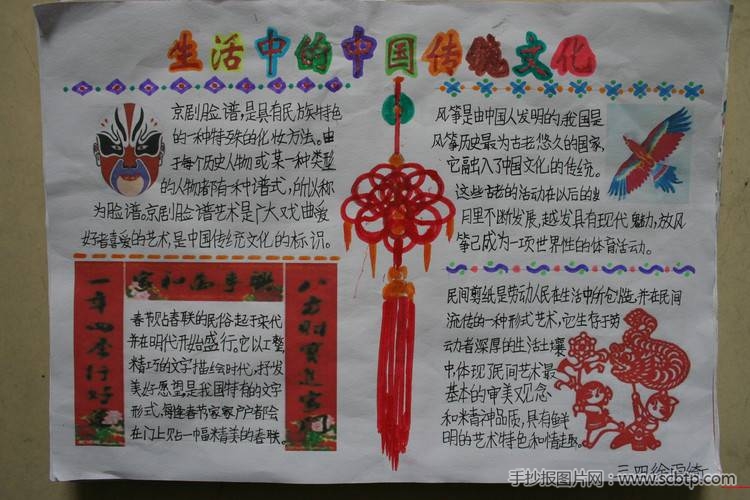 生活中的中国传统文化
京剧脸谱,是具有民族特色
的一种特殊的化妆方法。由
于每个历史人物或某一种类型
的人物都有一种谱式,所以称
为脸谱。京剧脸谱艺术是广大戏曲爱
好者喜爱的艺术,是中国传统文化的标识。
风筝是由中国人发明的,我国是
风筝历史最为古老悠久的国家,
它融入了中国文化的传统。
这些古老的活动在以后的岁
月里不断发展,越发具有现代魅力,放风
筝已成为一项世界性的体育活动。
家和万事兴
一年四季行好运
八方财宝进家门
春节贴春联的民俗起于宋代
并在明代开始盛行。它以工整,
精巧的文字描绘时代,抒发
美好愿望,是我国特有的文字
形式,每逢春节家家户户都会
在门上贴一幅精美的春联。
民间剪纸是劳动人民在生活中所创造,并在民间
流传的一种形式艺术,它生存于劳
动者深厚的生活土壤
中,体现了民间艺术最
基本的审美观念
和精神品质,具有鲜
明的艺术特色和情趣。
三四徐雯倚
手抄报图片网:www.scbtp.com